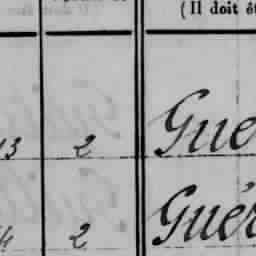 (Il doit ê
13 2 Gue
4 2 Guér